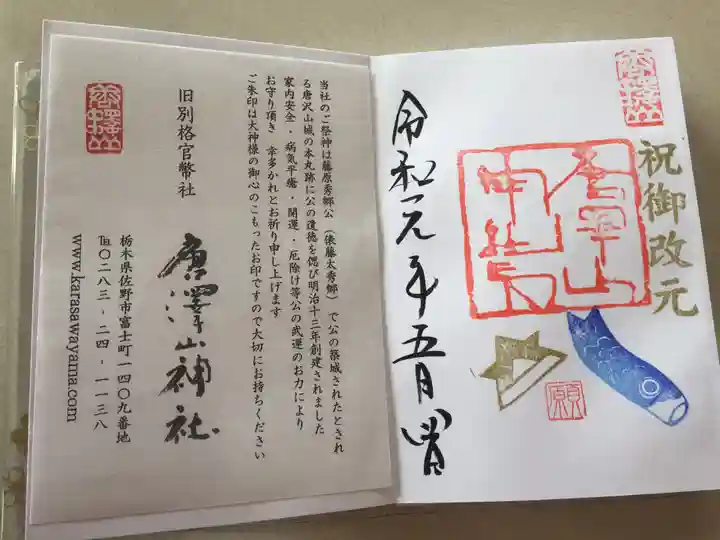 唐澤山
祝御改元
願
令和元年五月四日
当社のご祭神は藤原秀郷公（俵藤太秀郷）で公の築城されたとされ
る唐沢山城の本丸跡に公の遺徳を偲び明治十三年創建されました
家内安全・病気平癒・開運・厄除け等公の武運のお力により
お守り頂き 幸多かれとお祈り申し上げます
ご朱印は大神様の御心のこもったお印ですので大切にお持ちください
旧別格官幣社
唐澤山神社
唐澤山
栃木県佐野市富士町一四〇九番地
℡〇二八三-二四-一一三八
www.karasawayama.com